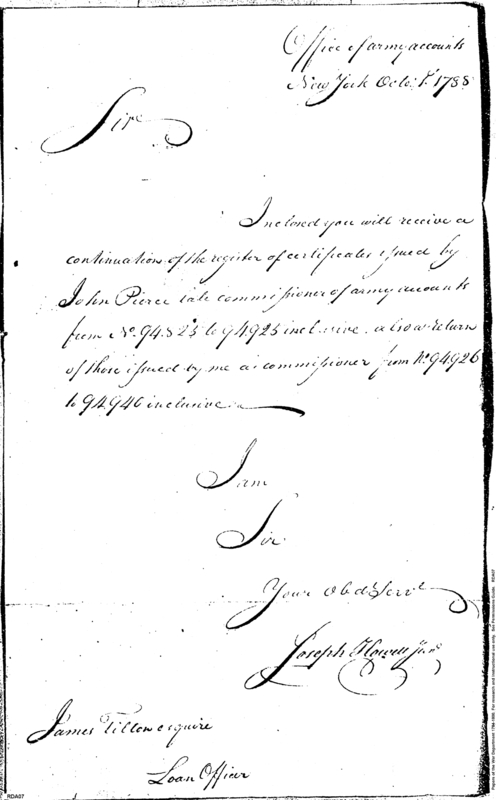 Office of army accounts
New York Octo. 1st 1788
Sir
Inclosed you will receive a
continuation of the register of certificates issued by
John Pierce late commissioner of army accounts
from No. 94825 to 94925 inclusive. also a return
of those issued by me as commissioner from No. 94926
to 94946 inclusive
I am
Sir
Your Obd Servt
Joseph Howell Junr
James Tillton esquire
Loan Officer
RDA07
Papers of the War Department 1784-1800. For academic and instructional use only. See Permissions Guide. RDA07